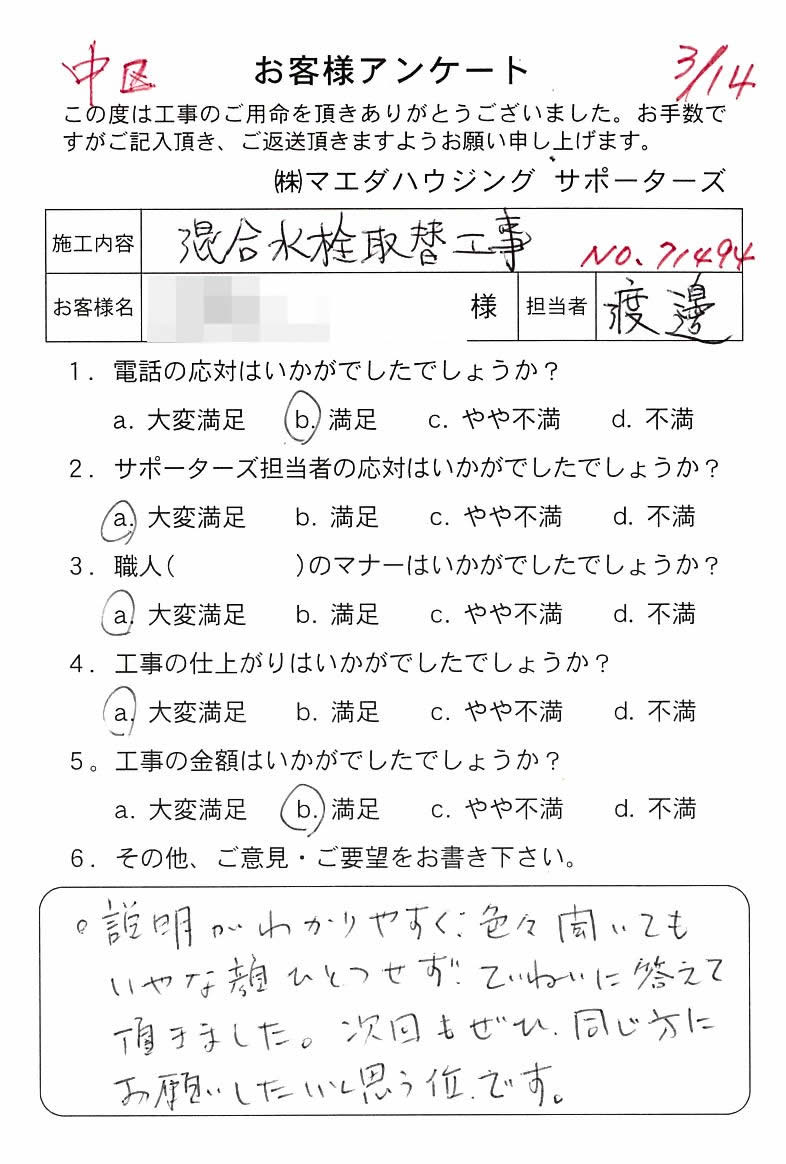 中区 お客様アンケート 3/14
この度は工事のご用命を頂きありがとうございました。お手数で
すがご記入頂き、ご返送頂きますようお願い申し上げます。
㈱マエダハウジング サポーターズ
施工内容 混合水栓取替工事 NO.71494
お客様名 様 担当者 渡邊
1. 電話の応対はいかがでしたでしょうか?
a. 大変満足 b. 満足 c. やや不満 d. 不満
2. サポーターズ担当者の応対はいかがでしたでしょうか?
a. 大変満足 b. 満足 c. やや不満 d. 不満
3. 職人( )のマナーはいかがでしたでしょうか?
a. 大変満足 b. 満足 c. やや不満 d. 不満
4. 工事の仕上がりはいかがでしたでしょうか?
a. 大変満足 b. 満足 c. やや不満 d. 不満
5。工事の金額はいかがでしたでしょうか?
a. 大変満足 b. 満足 c. やや不満 d. 不満
6. その他、ご意見・ご要望をお書き下さい。
。説明がわかりやすく、色々聞いても
いやな顔ひとつせず、ていねいに答えて
頂きました。次回もぜひ、同じ方に
お願いしたいと思う位、です。